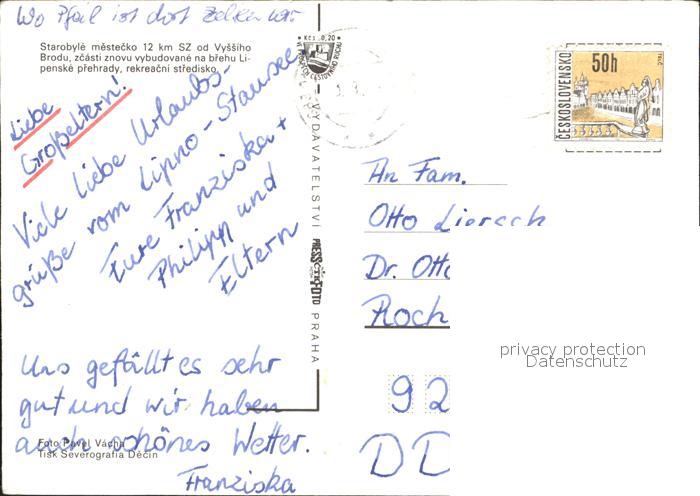 Wo Pfeil ist dort Zelten wir
Starobylé městečko 12 km SZ od Vyššího
Brodu, zčásti znovu vybudované na břehu Li-
penské přehrady, rekreační středisko.
Liebe
Großeltern!
Viele liebe Urlaubs-
grüße vom Lipno-Stausee
Eure Franziska +
Philipp und
Eltern
Uns gefällt es sehr
gut und wir haben
auch schönes Wetter.
Franziska
Foto Pavel Vácha
Tisk Severografia Děčín
VYDAVATELSTVÍ
PRESSFOTO
PRAHA
Kčs 0,20
ČESKOSLOVENSKO
50h
An Fam.
Otto Liersch
Dr. Otto
Roch
92
DD
privacy protection
Datenschutz